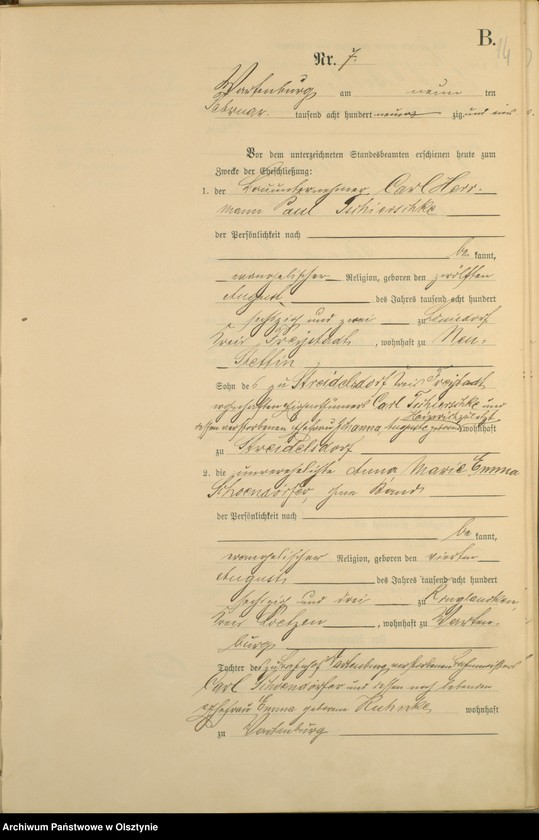 B.
14
Nr. 7
Wartenburg am neun ten
Februar tausend acht hundert neunzig und eins
Vor dem unterzeichneten Standesbeamten erschienen heute zum
Zwecke der Eheschließung:
1. der Bauunternehmer Carl Herr-
mann Paul Tschierschke
der Persönlichkeit nach
be kannt,
evangelischer Religion, geboren den zwölften
August des Jahres tausend acht hundert
sechszig und zwei zu
Kreis Freistadt, wohnhaft zu Neu-
Stettin
Sohn des zu Streidelsdorf Kreis Freistadt
wohnhaften Eigenthümers Carl Tschierschke und
dessen verstorbenen Ehefrau Johanna Auguste geborene wohnhaft
zu Streidelsdorf
2. die unverehelichte Anna Marie Emma
Schoendörfer, ohne Stand
der Persönlichkeit nach
be kannt,
evangelischer Religion, geboren den vierten
August des Jahres tausend acht hundert
sechszig und drei zu
Kreis Loetzen, wohnhaft zu Warten-
burg
Tochter des zu Bahnhof Wartenburg verstorbenen
Carl Schoendörfer und dessen noch lebenden
Ehefrau Emma geborene Kuhnke wohnhaft
zu Wartenburg
Archiwum Państwowe w Olsztynie